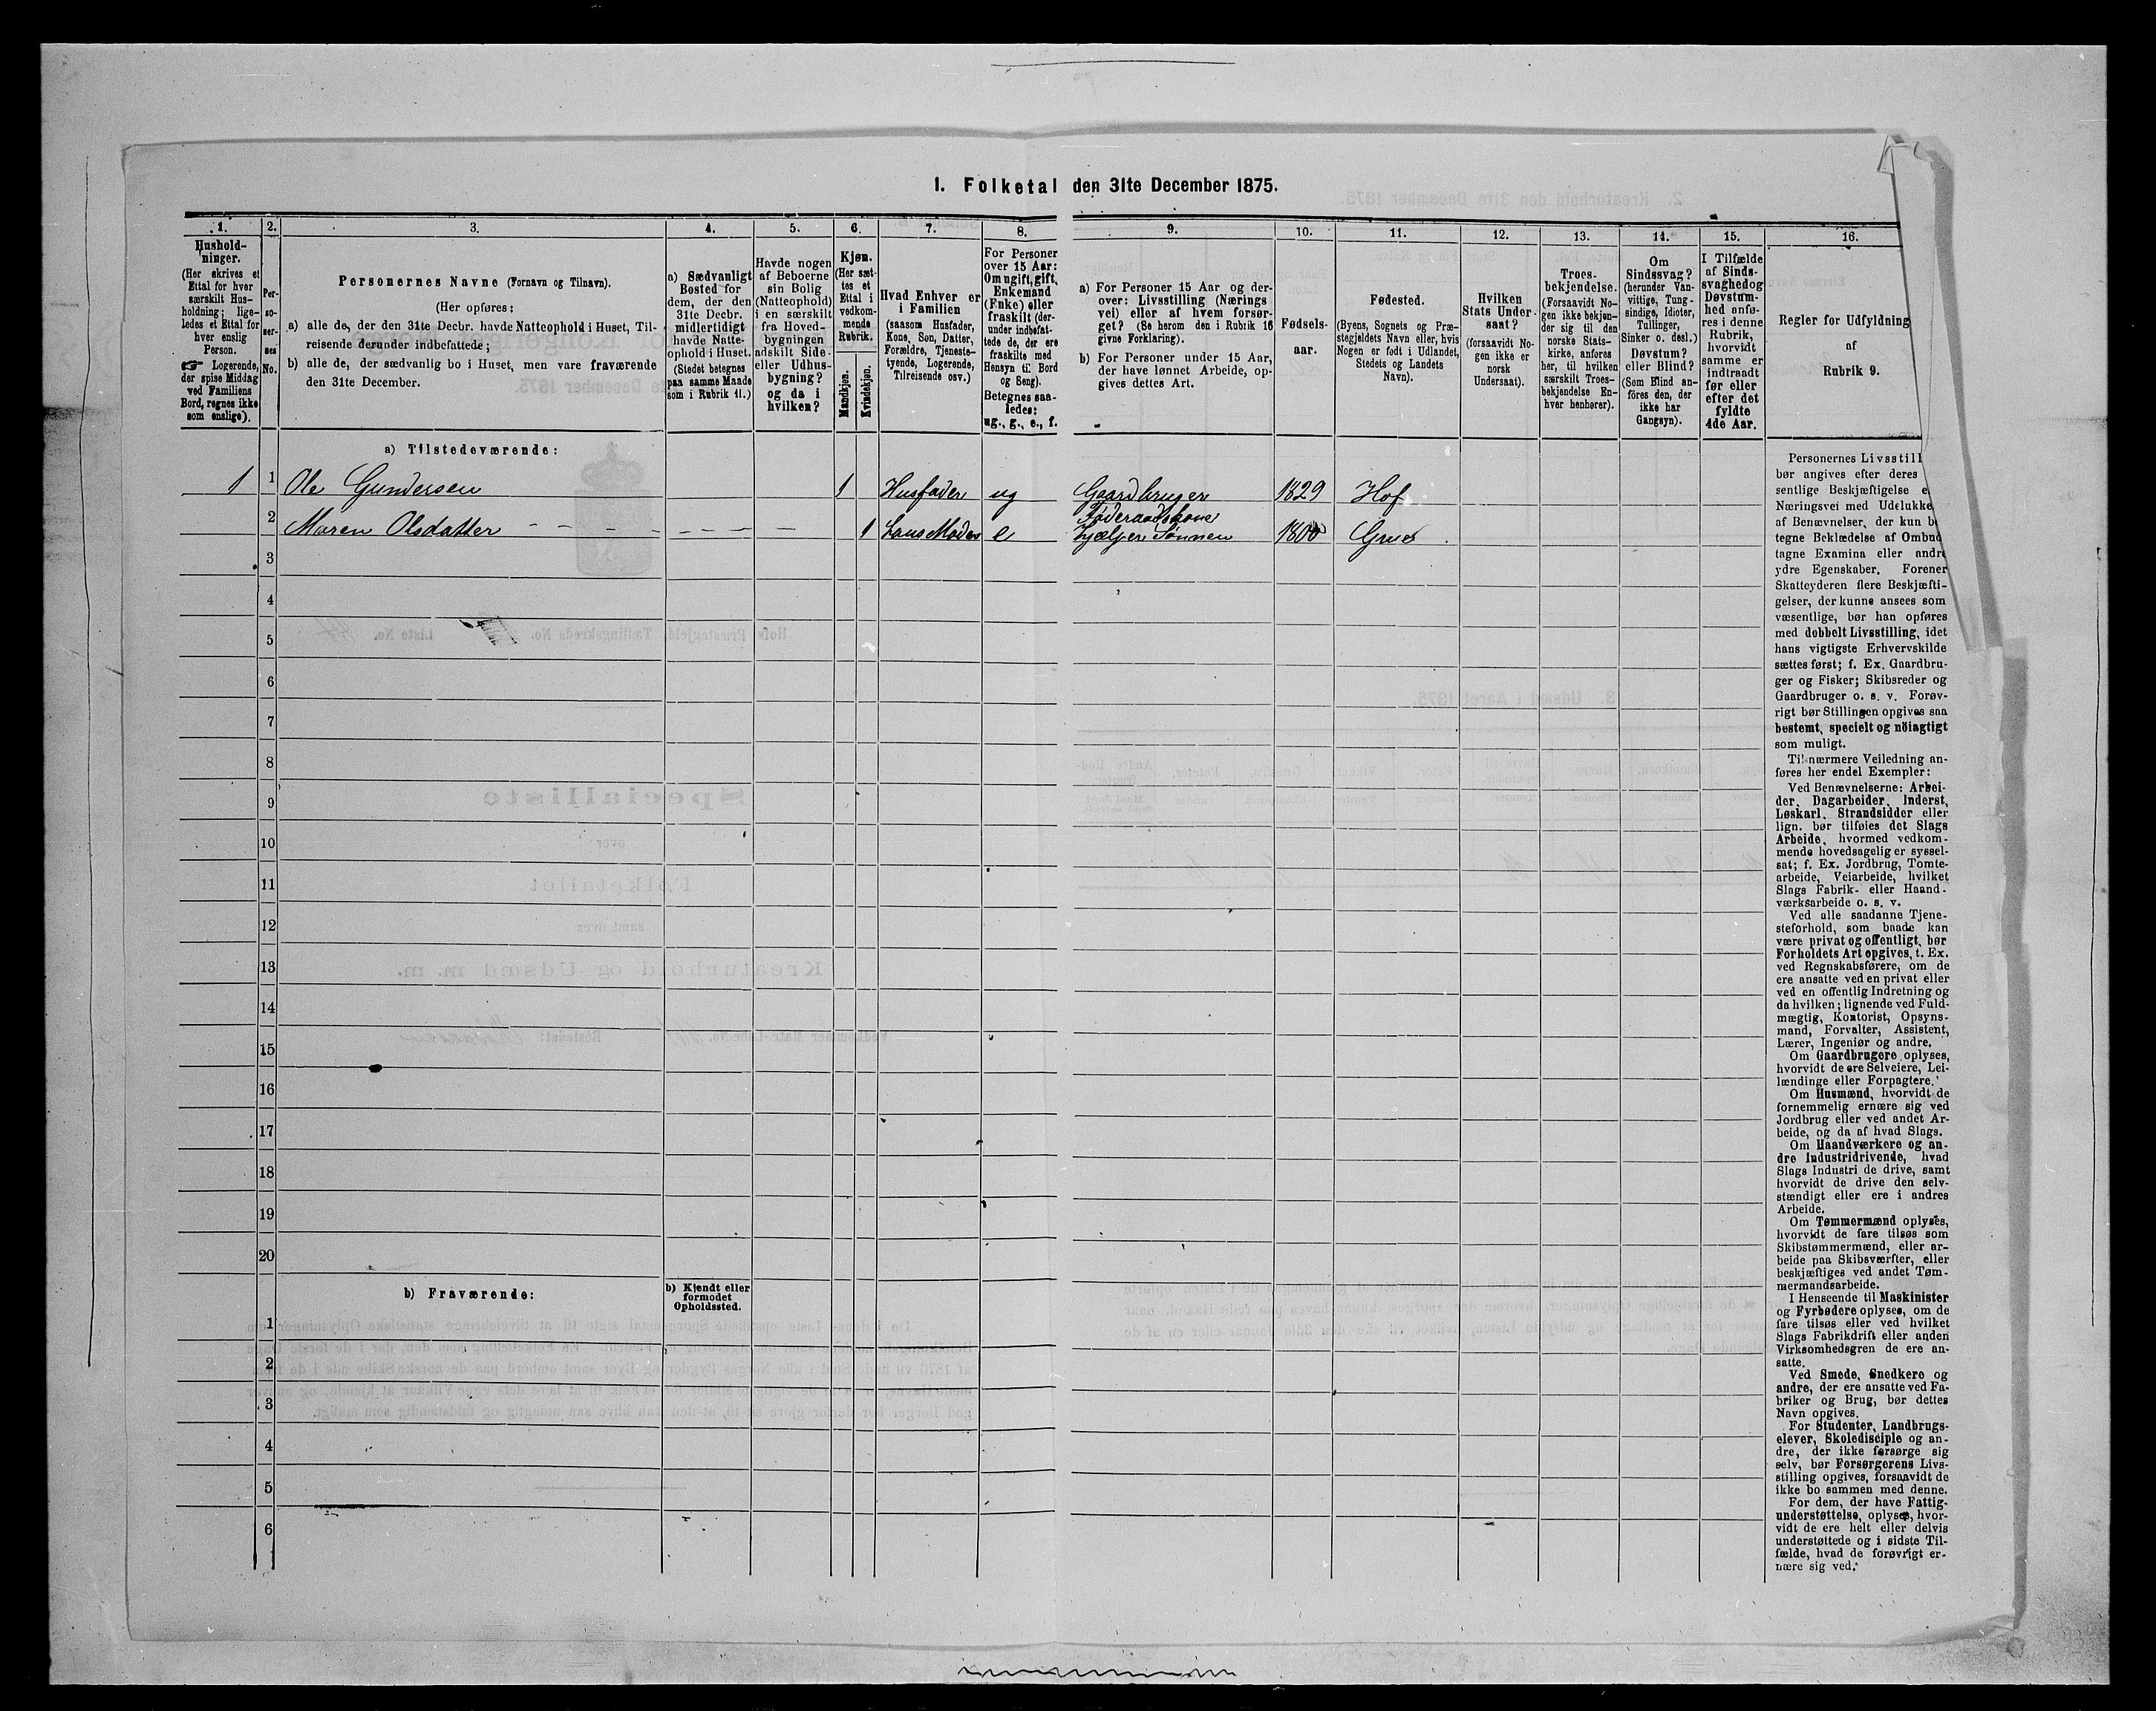 1. Folketal den 31te December 1875.
1.
Hushold-
ninger.
(Her skrives et
Ettal for hver
særskilt Hus-
holdning; lige-
ledes et Ettal for
hver enslig
Person.
☞ Logerende,
der spise Middag
ved Familiens
Bord, regnes ikke
som enslige).
2.
Per-
so-
ner-
nes
No.
3.
Personernes Navne (Fornavn og Tilnavn).
(Her opføres:
a) alle de, der den 31te Decbr. havde Natteophold i Huset, Til-
reisende derunder indbefattede;
b) alle de, der sædvanlig bo i Huset, men vare fraværende
den 31te December.
4.
a) Sædvanligt
Bosted for
dem, der den
31te Decbr.
midlertidigt
havde Natte-
ophold i Huset.
(Stedet betegnes
paa samme Maade
som i Rubrik 11.)
5.
Havde nogen
af Beboerne
sin Bolig
(Natteophold)
i en særskilt
fra Hoved-
bygningen
adskilt Side-
eller Udhus-
bygning?
og da i
hvilken?
6.
Kjøn.
(Her sæt-
tes et
Ettal i
vedkom-
mende
Rubrik.
Mandkjøn.
Kvindekjøn.
7.
Hvad Enhver er
i Familien
(saasom Husfader,
Kone, Søn, Datter,
Forældre, Tjeneste-
tyende, Logerende,
Tilreisende osv.)
8.
For Personer
over 15 Aar:
Om ugift, gift,
Enkemand
(Enke) eller
fraskilt (der-
under indbefat-
tede de, der ere
fraskilte med
Hensyn til Bord
og Seng).
Betegnes saa-
ledes:
ug., g., e., f.
9.
a) For Personer 15 Aar og der-
over: Livsstilling (Nærings
vei) eller af hvem forsør-
get? (Se herom den i Rubrik 16
givne Forklaring).
b) For Personer under 15 Aar,
der have lønnet Arbeide, op-
gives dettes Art.
10.
Fødsels-
aar.
11.
Fødested.
(Byens, Sognets og Præ-
stegjeldets Navn eller, hvis
Nogen er født i Udlandet,
Stedets og Landets
Navn).
12.
Hvilken
Stats Under-
saat?
(forsaavidt No-
gen ikke er
norsk
Undersaat).
13.
Troes-
bekjendelse.
(Forsaavidt No-
gen ikke bekjen-
der sig til den
norske Stats-
kirke, anføres
her, til hvilken
særskilt Troes-
bekjendelse En-
hver henhører).
14.
Om
Sindssvag?
(herunder Van-
vittige, Tung-
sindige, Idioter,
Tullinger,
Sinker o. desl.)
Døvstum?
eller Blind?
(Som Blind an-
føres den, der
ikke har
Gangsyn).
15.
I Tilfælde
af Sinds-
svaghed og
Døvstum-
hed anfø-
res i denne
Rubrik,
hvorvidt
samme er
indtraadt
før eller
efter det
fyldte
4de Aar.
16.
Regler for Udfyldning
af
Rubrik 9.
a) Tilstedeværende:
1 1 Ole Gundersen 1 Husfader ug Gaardbruger 1829 Hof
Føderaadskone
2 Maren Olsdatter 1 hans Moder e hjælper Sønnen 1800 Grue
3
4
5
6
7
8
9
10
11
12
13
14
15
16
17
18
19
20
b) Fraværende:
b) Kjendt eller
formodet
Opholdssted.
1
2
3
4
5
6
Personernes Livsstill
bør angives efter deres
sentlige Beskjæftigelse e
Næringsvei med Udelukke
af Benævnelser, der kun b
tegne Beklædelse af Ombud
tagne Examina eller andre
ydre Egenskaber. Forener
Skatteyderen flere Beskjæfti-
gelser, der kunne ansees som
væsentlige, bør han opføres
med dobbelt Livsstilling, idet
hans vigtigste Erhvervskilde
sættes først; f. Ex. Gaardbru-
ger og Fisker; Skibsreder og
Gaardbruger o. s. v. Forøv-
rigt bør Stillingen opgives saa
bestemt, specielt og nöiagtigt
som muligt.
Til nærmere Veiledning an-
føres her endel Exempler:
Ved Benævnelserne: Arbei-
der, Dagarbeider, Inderst,
Løskarl, Strandsidder eller
lign. bør tilføies det Slags
Arbeide, hvormed vedkom-
mende hovedsagelig er syssel-
sat; f. Ex. Jordbrug, Tomte-
arbeide, Veiarbeide, hvilket
Slags Fabrik- eller Haand-
værksarbeide o. s. v.
Ved alle saadanne Tjene-
steforhold, som baade kan
være privat og offentligt, bør
Forholdets Art opgives, t. Ex.
ved Regnskabsførere, om de
ere ansatte ved en privat eller
ved en offentlig Indretning og
da hvilken; lignende ved Fuld-
mægtig, Kontorist, Opsyns-
mand, Forvalter, Assistent,
Lærer, Ingeniør og andre.
Om Gaardbrugere oplyses,
hvorvidt de ere Selveiere, Lei-
lændinge eller Forpagtere.
Om Husmænd, hvorvidt de
fornemmelig ernære sig ved
Jordbrug eller ved andet Ar-
beide, og da af hvad Slags.
Om Haandværkere og an-
dre Industridrivende, hvad
Slags Industri de drive, samt
hvorvidt de drive den selv-
stændigt eller ere i andres
Arbeide.
Om Tømmermænd oplyses,
hvorvidt de fare tilsøs som
Skibstømmermænd, eller ar-
beide paa Skibsværfter, eller
beskjæftiges ved andet Tøm-
mermandsarbeide.
I Henseende til Maskinister
og Fyrbødere oplyses, om de
fare tilsøs eller ved hvilket
Slags Fabrikdrift eller anden
Virksomhedsgren de ere an-
satte.
Ved Smede, Snedkere og
andre, der ere ansatte ved Fa-
briker og Brug, bør dettes
Navn opgives.
For Studenter, Landbrugs-
elever, Skoledisciple og an-
dre, der ikke forsørge sig
selv, bør Forsørgerens Livs-
stilling opgives, forsaavidt de
ikke bo sammen med denne.
For dem, der have Fattig-
understøttelse, oplyses, hvor-
vidt de ere helt eller delvis
understøttede og i sidste Til-
fælde, hvad de forøvrigt er-
nære sig ved.